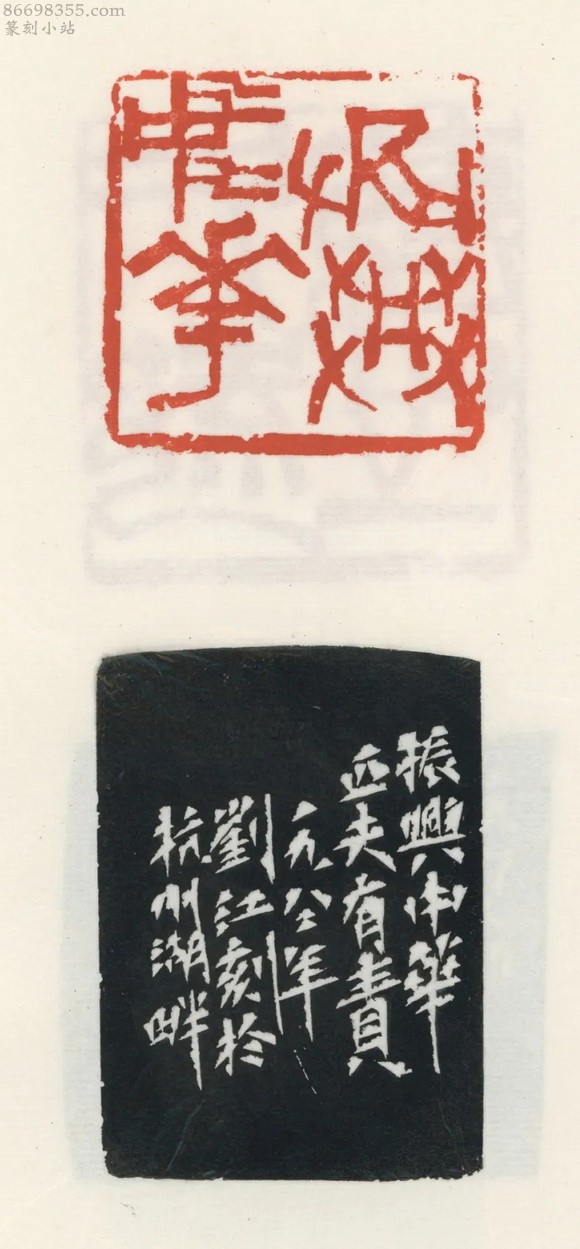 86698355.com
篆刻小站
振興
中華
振興中華
匹夫有責
一九八年
劉江刻於
杭州湖畔